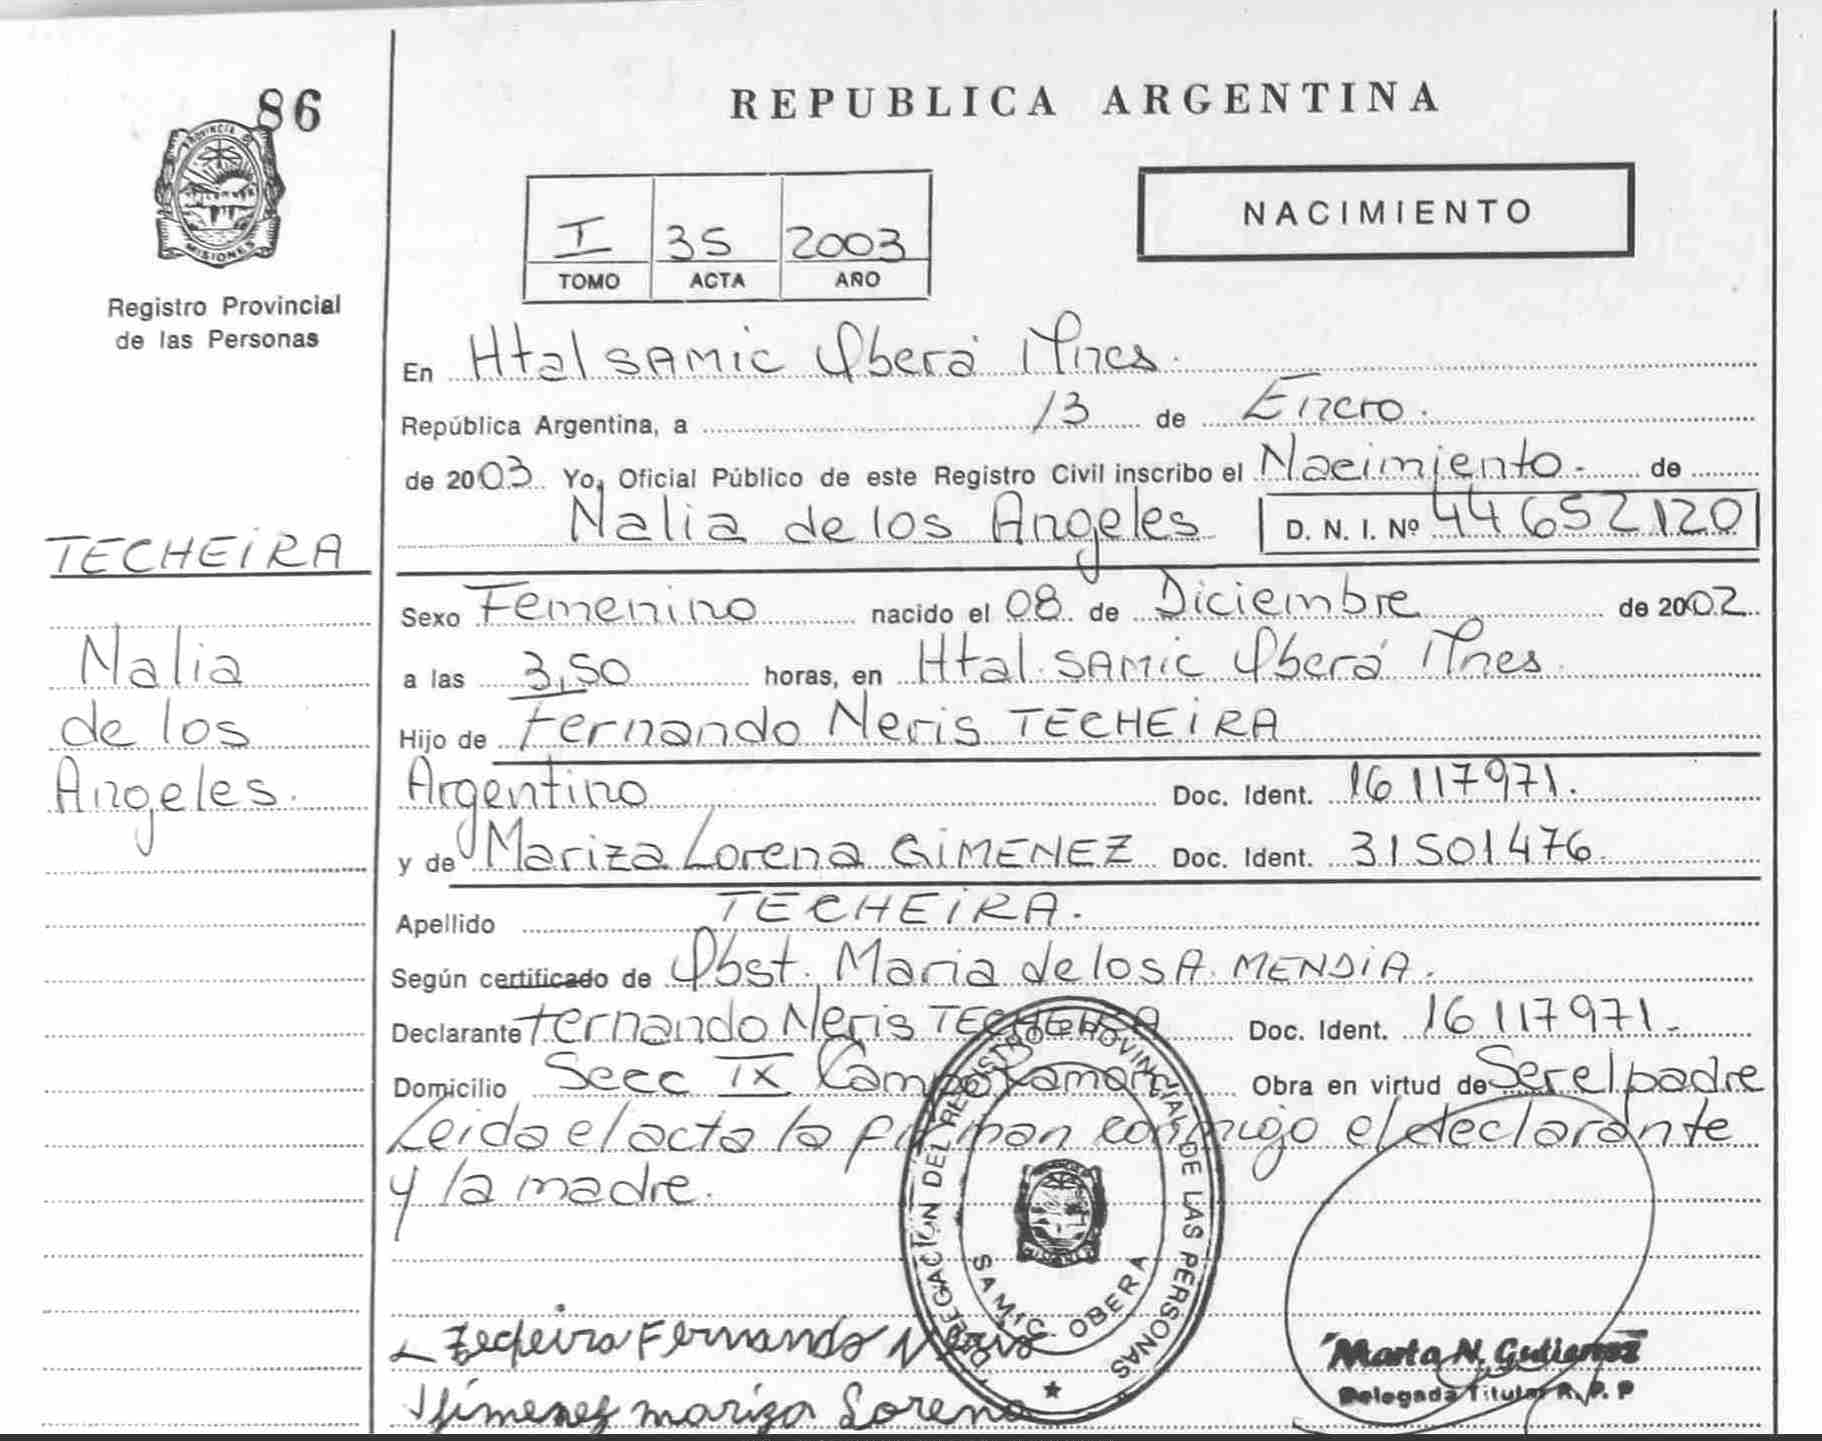 86
PROVINCIA DE
MISIONES
Registro Provincial
de las Personas
REPUBLICA ARGENTINA
NACIMIENTO
I 35 2003
TOMO ACTA AÑO
En Htal SAMIC Oberá Mnes.
República Argentina, a 13 de Enero.
de 2003 Yo, Oficial Público de este Registro Civil inscribo el Nacimiento.- de
Nalia de los Angeles D. N. I. Nº 44652120
TECHEIRA
Nalia
de los
Angeles.
Sexo Femenino nacido el 08 de Diciembre de 2002
a las 3,50 horas, en Htal. SAMIC Oberá Mnes.
Hijo de Fernando Neris TECHEIRA
Argentino Doc. Ident. 16117971.
y de Mariza Lorena GIMENEZ Doc. Ident. 31501476.
Apellido TECHEIRA.
Según certificado de Obst. Maria de los A. MENDIA.
Declarante Fernando Neris TECHEIRA Doc. Ident. 16117971.
Domicilio Secc IX Campo Ramón Obra en virtud de Ser el padre
Leida el acta la firman conmigo el declarante
y la madre.
DELEGACION DEL REGISTRO PROVINCIAL DE LAS PERSONAS
SAMIC. OBERA
Techeira Fernando Neris
Jimenez mariza Lorena
Marta N. Gutierrez
Delegada Titular R. P. P